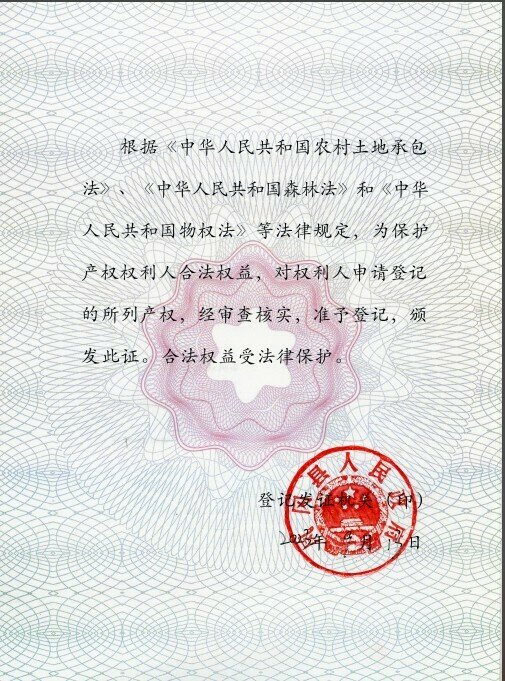 根据《中华人民共和国农村土地承包
法》、《中华人民共和国森林法》和《中华
人民共和国物权法》等法律规定，为保护
产权权利人合法权益，对权利人申请登记
的所列产权，经审查核实，准予登记，颁
发此证。合法权益受法律保护。
县人民政府
登记发证机关（印）
年 月 日